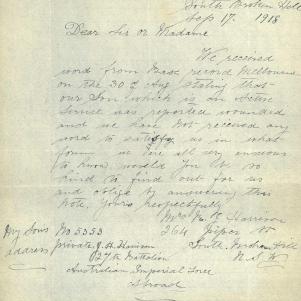 South Broken Hill
Sep 17. 1918
Dear Sir or Madame
We received
word from Base record Melbourne
on the 30 of Aug stating that
our Son which is on Active
Service was reported wounded
and we have not received any
word to satisfy as in what
form we are all very anxious
to know would you be so
kind to find out for us
and oblige by answering this
note. yours respectfully
Mrs M. E. Harrison
264 Piper St
South Broken Hill
N.S.W
My Sons No 5353
address private Harrison
27th Battalion
Australian Imperial Force
Abroad